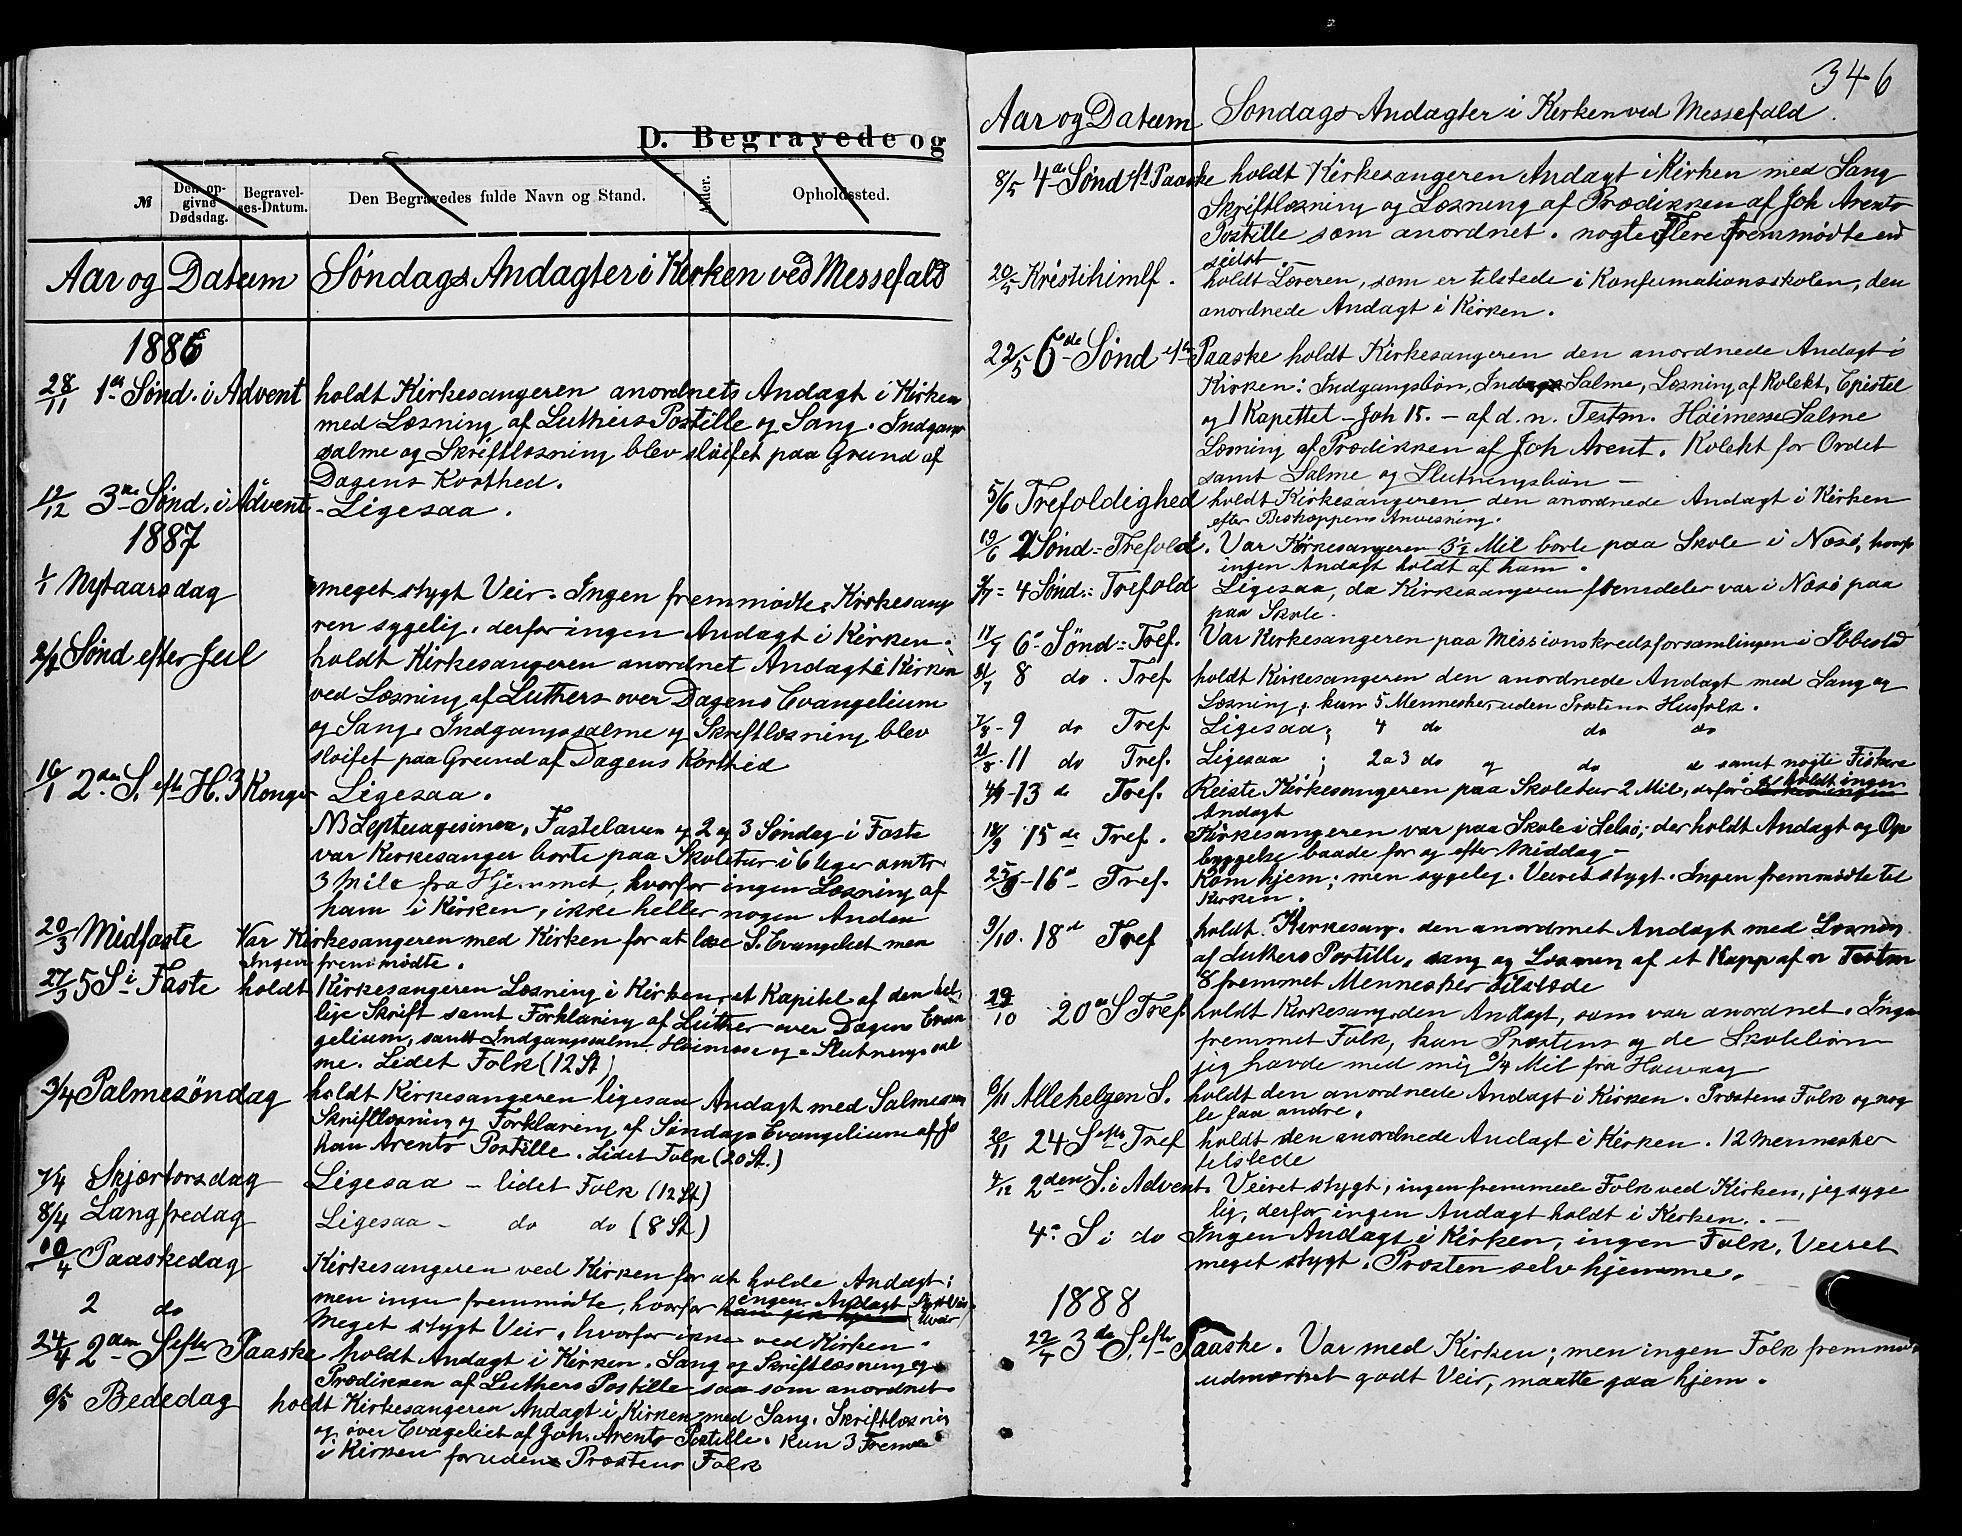 D. Begravede og
№
Den op-
givne
Dødsdag.
Begravel-
ses-Datum.
Den Begravedes fulde Navn og Stand.
Alder.
Opholdssted.
Aar og Datum Søndags Andagter i Kirken ved Messefald
1886
28/11 1ste Sønd. i Advent holdt Kirkesangeren anordnets Andagt i Kirken
med Læsning af Luthers Postille og Sang. Indgangs
salme og Skriftlæsning blev sløifet paa Grund af
Dagens Korthed.
12/12 3die Sønd. i Advent - Ligesaa.
1887
1/1 Nytaarsdag meget stygt Veir. Ingen fremmødte, Kirkesang
ren sygelig, derfor ingen Andagt i Kirken.
2/1 Sønd efter Jul holdt Kirkesangeren anordnet Andagt i Kirken
ved Læsning af Luthers over Dagens Evangelium
og Sang. Indgangssalme og Skriftlæsning blev
sløifet paa Grund af Dagens Korthed
16/1 2den S. eft H. 3 Konger Ligesaa.
NB Septuagesima, Fastelaven og 2 og 3 Søndag i Faste
var Kirkesanger borte paa Skoletur i 6 Uger omtr
3 Mile fra Hjemmet, hvorfor ingen Læsning af
ham i Kirken, ikke heller nogen Anden
20/3 Midfaste Var Kirkesangeren med Kirken for at læse S. Evangeliet men
Ingen fremmødte.
27/3 5 S i Faste holdt Kirkesangeren Læsning i Kirken, et Kapitel af den hel
lige Skrift samt Forklaring af Luther over Dagens Evan
gelium, samt Indgangssalme, Høimesse og Slutnings sal
me. Lidet Folk (12 St)
3/4 Palmesøndag holdt Kirkesangeren ligesaa Andagt med Salmesang
Skriftlæsning og Forklaring af Søndags Evangelium af Jo
han Arents Postille. Lidet Folk (20 St.)
7/4 Skjærtorsdag Ligesaa - lidet Folk (12 St)
8/4 Langfredag Ligesaa - do do (8 St)
10/4 Paaskedag Kirkesangeren ved Kirken for at holde Andagt;
men ingen fremmødte, hvorfor ingen Andagt
2 do Meget stygt Veir, hvorfor ikke ved Kirken.
24/4 2den S efter Paaske holdt Andagt i Kirken. Sang og Skriftlæsning og
Prædiken af Luthers Postille saa som anordnet
6/5 Bededag holdt Kirkesangeren Andagt i Kirken med Sang, Skriftlæsning
og over Evageliet af Joh. Arents Postille. kun 3 Fremm
i Kirken foruden Præstens Folk
346
Aar og Datum Søndags Andagter i Kirken ved Messefald.
8/5 4de Sønd eft Paaske holdt Kirkesangeren Andagt i Kirken med Sang
Skriftlæsning og Læsning af Prædikken af Joh Arents
Postille som anordnet. nogle Flere Fremmødte end
sidst.
20/5 Kristi himlf. holdt Læreren, som er tilstede i Konfirmationsskolen, den
anordnede Andagt i Kirken.
22/5 6de Sønd eft Paaske holdt Kirkesangeren den anordnede Andagt i
Kirken: Indgangsbøn, Indgngs Salme, Læsning af Kolekt, Epistel
og 1 Kapettet - Joh 15. - af d. n. Testm. Høimesse Salme
Læsning af Prædikken af Joh Arent. Kolekt for Ordet
samt Salme og Slutningsbøn -
5/6 Trefoldighed holdt Kirkesangeren den anordnede Andagt i Kirken
efter Biskoppens Anvisning.
19/6 2 Sønd = Trefold. Var Kirkesangeren 3½ Mil borte paa Skole i Næsø, hvorfor
ingen Andagt holdt af ham.
3/7 = 4 Sønd. = Trefold Ligesaa, da Kirkesangeren fremdeles var i Næsø paa
paa Skole.
17/7 6te Sønd = Tref. Var Kirkesangeren paa Missionskredsforsamlingen i Ibbestad
31/7 8 do. Tref holdt Kirkesangeren den anordnede Andagt med Sang og
Læsning; kun 5 Mennesker uden Præstens Husfolk.
7/8 - 9 do Tref Ligesaa; 4 do do do
21/8 - 11 do Tref. Ligesaa; 2 a 3 do og do d samt nogle Fiskere
4/9 - 13 de Tref. Reiste Kirkesangeren paa Skoletur 2 Mil, derfor holdt ingen
Andagt
18/9 15de Tref. Kirkesangeren var paa Skole i Selsø, der holdt Andagt og Op
byggelse baade for og efter Middag -
25/9 - 16de Tref. Kom hjem; men sygelig. Veiret stygt. Ingen fremmødte til
Kirken.
9/10. 18de Tref holdt Kirkesang. den anordnet Andagt med Læsning
af Luthers Postille, sang og Læsning af et Kapp af n Testm
8 fremmet Mennesker tilstede
/10 20de S Tref holdt Kirkesang. den Andagt, som var anordnet. Ingen
fremmet Folk, kun Præstens og de Skolebørn
jeg havde med mig ¾ Mil fra
6/11 Allehelgen S. holdt den anordnede Andagt i Kirken. Præstens Folk og nog
le faa andre.
20/11 24 S efter Tref holdt den anordnede Andagt i Kirken. 12 Mennesker
tilstede
4/12 2den S. i Advent. Veiret stygt; ingen fremmede Folk ved Kirken, jeg syge
lig, derfor ingen Andagt holdt i Kirken. -
4de S i do Ingen Andagt i Kirken, ingen Folk. Veiret
meget stygt. Præsten selv hjemme.
1888
22/4 3die S. eft Paaske. Var med Kirken; men ingen Folk fremmødt
udmærket godt Veir, maatte gaa hjem.